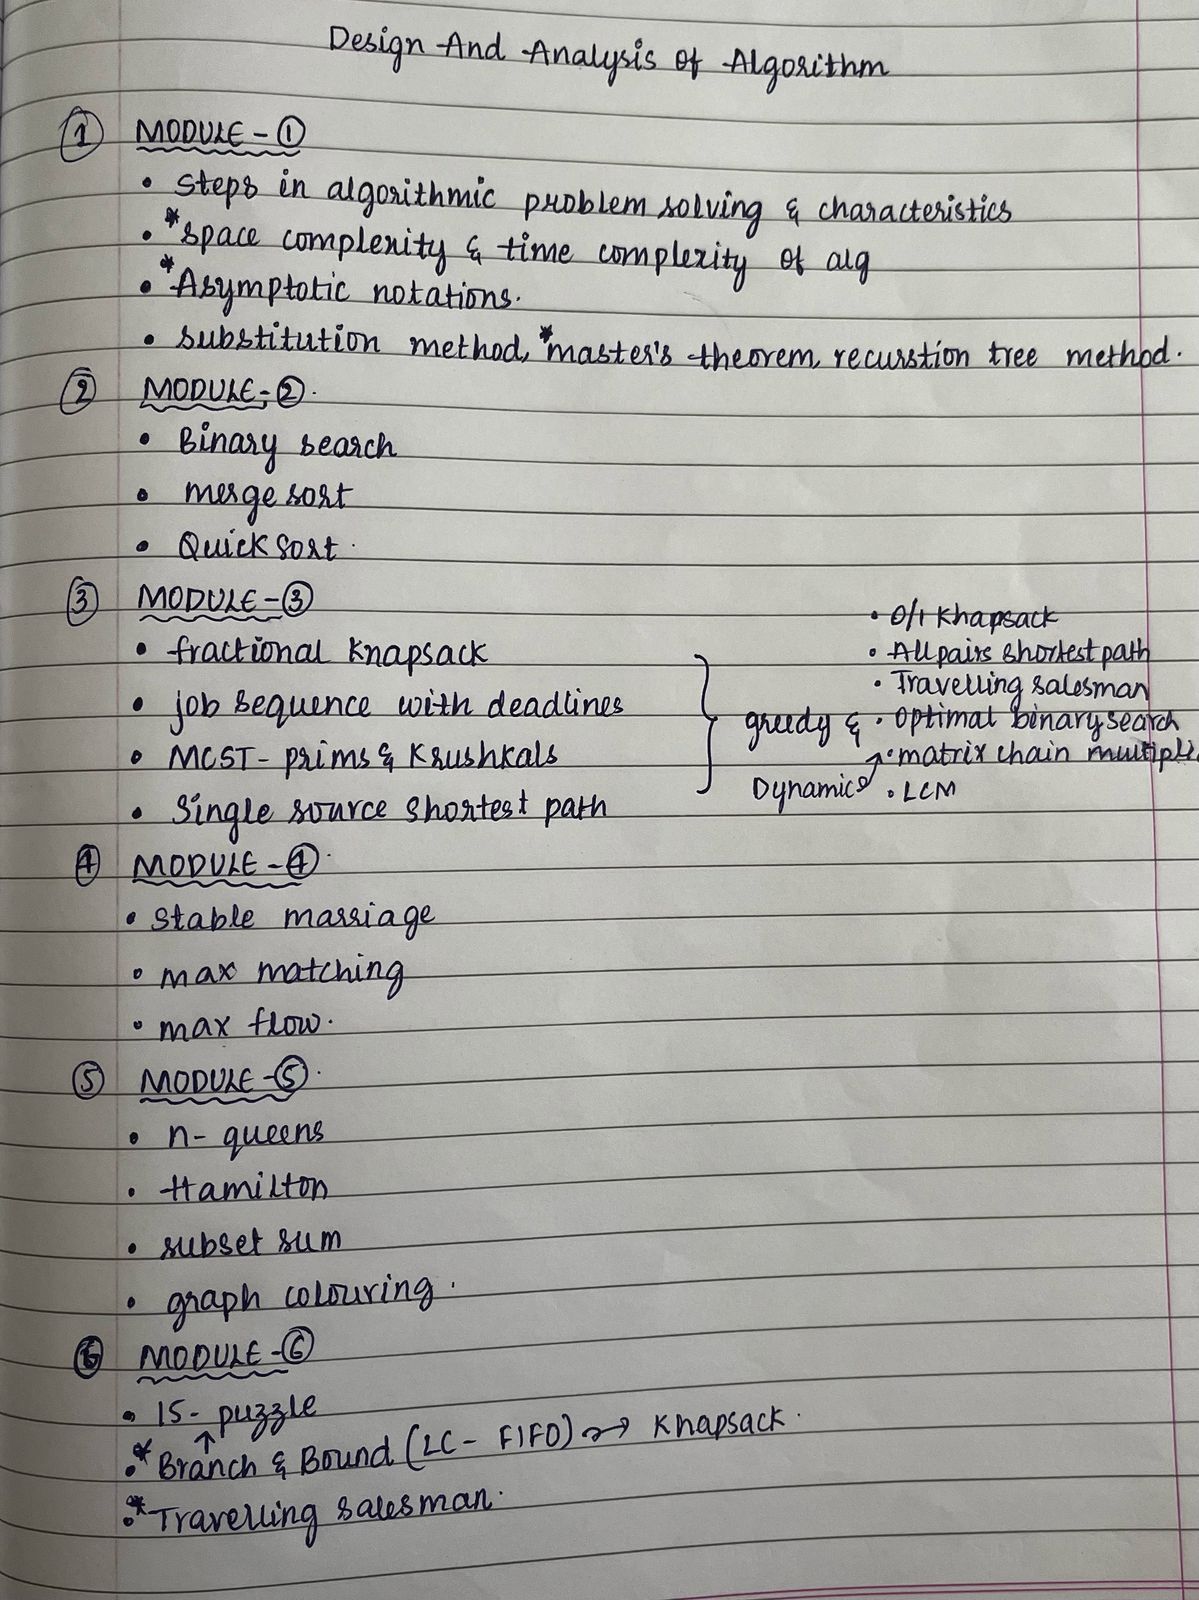 Design And Analysis of Algorithm
① MODULE - ①
• steps in algorithmic problem solving & characteristics
• *space complexity & time complexity of alg
• *Asymptotic notations.
• substitution method, *master's theorem, recurstion tree method.
② MODULE - ②.
• Binary search
• merge sort
• Quick sort.
③ MODULE - ③
• fractional Knapsack
• job sequence with deadlines
• MCST - prims & Krushkals
• Single source shortest path
greedy &
Dynamic
• 0/1 Knapsack
• All pairs shortest path
• Travelling salesman
• optimal binary search
• matrix chain multipli
• LCM
④ MODULE - ④.
• stable marriage
• max matching
• max flow.
⑤ MODULE - ⑤.
• n- queens
• Hamilton
• subset sum
• graph colouring.
⑥ MODULE - ⑥
• 15- puzzle
• *Branch & Bound (LC - FIFO) → Knapsack.
• *Travelling salesman.